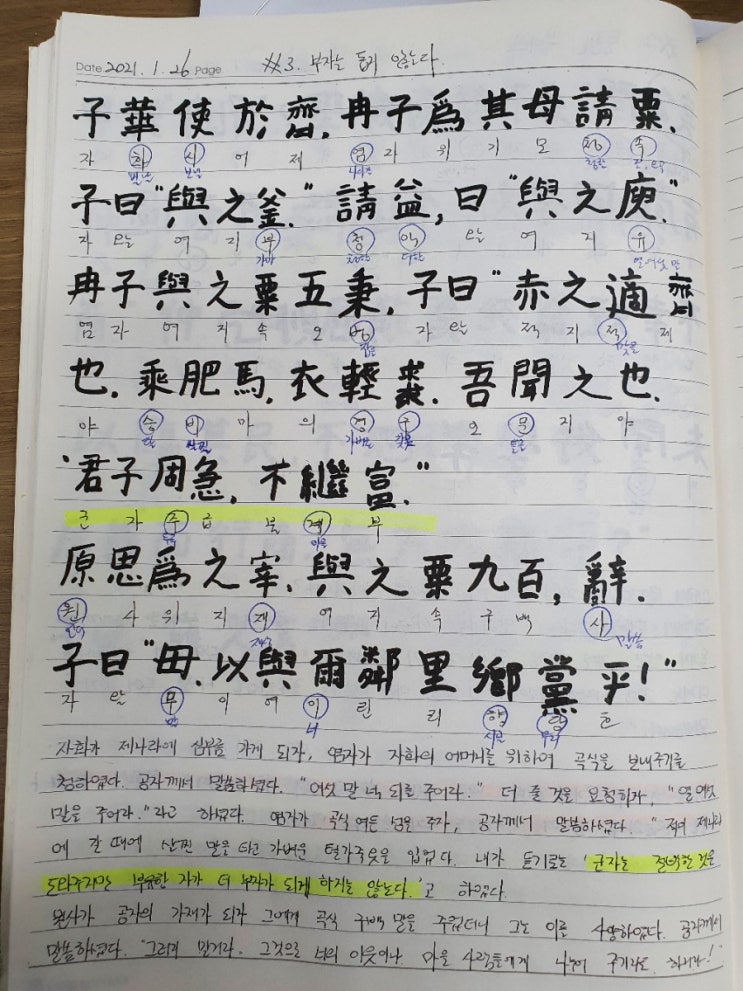 Date 2021. 1. 26 Page #3. 부자는 돕지 않는다.
子華使於齊, 冉子爲其母請粟.
자 화 시 어 제 염 자 위 기 모 청 속
子曰 "與之釜." 請益, 曰 "與之庾."
자 왈 여 지 부 청 익 왈 여 지 유
가마 청할 더할 열여섯 말
冉子與之粟五秉, 子曰 "赤之適齊
염 자 여 지 속 오 병 자 왈 적 지 적 제
也. 乘肥馬, 衣輕裘. 吾聞之也.
야 승 비 마 의 경 구 오 문 지 야
탈 살찔 가벼울 갖옷 들을
'君子周急, 不繼富."
군 자 주 급 불 계 부
이을
原思爲之宰, 與之粟九百, 辭.
원 사 위 지 재 여 지 속 구 백 사
말씀
子曰 "毋, 以與爾鄰里鄕黨乎!"
자 왈 무 이 여 이 린 리 향 당 호
말 너 시골 무리
자화가 제나라에 심부름 가게 되자, 염자가 자화의 어머니를 위하여 곡식을 보내주기를
청하였다. 공자께서 말씀하셨다. "여섯 말 넉 되를 주어라." 더 줄 것을 요청하자, "열여섯
말을 주어라."라고 하셨다. 염자가 곡식 여든 섬을 주자, 공자께서 말씀하셨다. "적이 제나라
에 갈 때에 살찐 말을 타고 가벼운 털가죽옷을 입었다. 내가 듣기로는 '군자는 절박한 것을
도와주지만 부유한 자가 더 부자가 되게 하지는 않는다.'고 하였다.
원사가 공자의 가재가 되자 그에게 곡식 구백 말을 주었더니 그는 이를 사양하였다. 공자께서
말씀하셨다. "그러지 말거라. 그것으로 너의 이웃이나 마을 사람들에게 나누어 주거라도 하려라!"